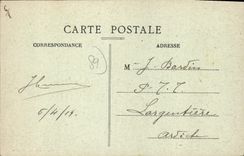 CARTE POSTALE
CORRESPONDANCE
ADRESSE
89
M J. Bardin
P. T. T.
Largentière
Ardèche
6/4/19.